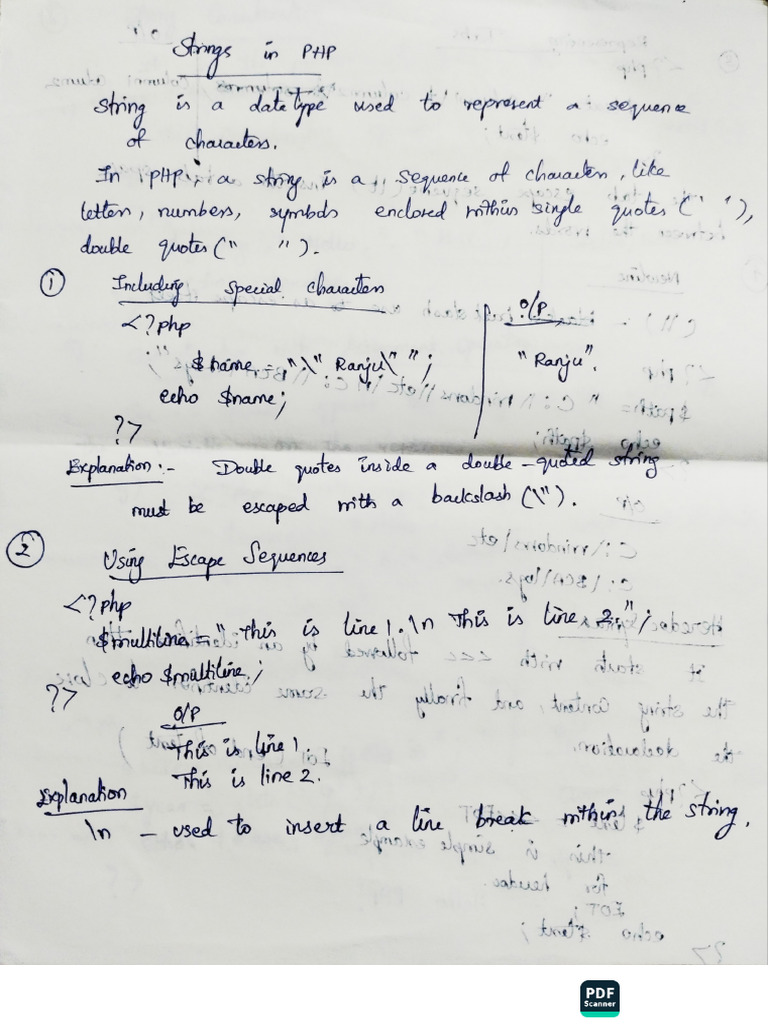 Strings in PHP
String is a datatype used to represent a sequence
of characters.
In PHP, a string is a sequence of characters, like
letters, numbers, symbols enclosed within single quotes (' '),
double quotes (" ").
① Including special characters
<?php
$name = "\" Ranju\" ";
echo $name;
?>
O/P
"Ranju".
Explanation:- Double quotes inside a double-quoted string
must be escaped with a backslash (\").
② Using Escape Sequences
<?php
$multiline = "This is line 1.\n This is line 2.";
echo $multiline;
?>
O/P
This is line 1.
This is line 2.
Explanation
\n - used to insert a line break within the string.
PDF
Scanner